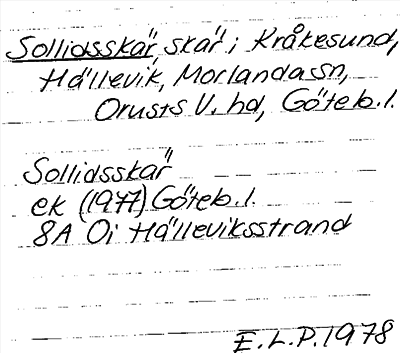 Sollidsskär, skär i Kråkesund,
Hällevik, Morlanda sn,
Orusts V. hd, Göteb. l.
Sollidsskär
ek (1977) Göteb. l.
8A Oi Hälleviksstrand
E. L. P. 1978